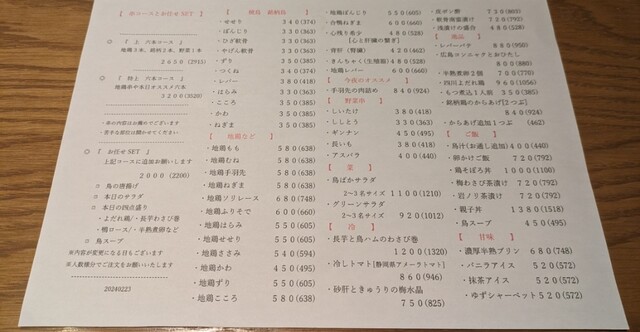 【 串コースとお任せ SET 】
◎ 『 上 六本コース 』
地鶏3本、銘柄2本、野菜1本
2650 (2915)
◎ 『 特上 六本コース 』
地鶏串や本日オススメ六本
3200 (3520)
※串の内容はお薦めでございます
・苦手な部位は聞かせてください
◎ 『 お任せ SET 』
上記コースに追加お願いします
2000 (2200)
□ 鳥の唐揚げ
□ 本日のサラダ
□ 本日の四点盛り
・よだれ鶏/・長芋わさび巻
・鴨ロース/・半熟煮卵など
□ 鳥スープ
※内容が変更になる日もございます
※人数様分でご注文をお願いいたします
20240223
【 焼鳥 銘柄鶏 】
・せせり 340(374)
・ぼんじり 330(363)
・ひざ軟骨 330(363)
・やげん軟骨 330(363)
・ずり 350(385)
・つくね 340(374)
・レバー 380(418)
・はらみ 330(363)
・こころ 350(385)
・かわ 350(385)
・ねぎま 350(385)
【 地鶏など 】
・地鶏もも 580(638)
・地鶏むね 580(638)
・地鶏手羽先 580(638)
・地鶏ねぎま 580(638)
・地鶏ソリレース 680(748)
・地鶏ふりそで 600(660)
・地鶏はらみ 550(605)
・地鶏せせり 550(605)
・地鶏ささみ 540(594)
・地鶏かわ 450(495)
・地鶏ずり 550(605)
・地鶏こころ 580(638)
・地鶏ぼんじり 550(605)
・合鴨ねぎま 600(660)
・心残り希少 480(528)
【心と肝臓の繋ぎ】
・背肝(腎臓) 420(462)
・きんちゃく(生殖器) 480(528)
・地鶏レバー 600(660)
【 今夜のオススメ 】
・手羽先の肉詰め 840(924)
【 野菜串 】
・ししとう 380(418)
・しいたけ 330(363)
・ギンナン 450(495)
・長いも 380(418)
・アスパラ 400(440)
【 菜 】
・鳥ばかサラダ
2〜3名サイズ 1100(1210)
・グリーンサラダ
2〜3名サイズ 920(1012)
【 冷 】
・長芋と鳥ハムのわさび巻
1200(1320)
・冷しトマト【静岡県アメーラトマト】
860(946)
・砂肝ときゅうりの梅水晶
750(825)
・皮ポン酢 730(803)
・軟骨南蛮漬け 720(792)
・浅漬けの盛合 480(528)
【 逸品 】
・レバーパテ 860(950)
・広島コンニャクとおひたし
800(880)
・半熟煮卵2個 700(770)
・四川よだれ鶏 960(1056)
・もつ煮込1人前 350(385)
・銘柄鶏のからあげ【2つぶ】
840(924)
・からあげ追加1つぶ (462)
【 ご飯 】
・鳥汁(お通し追加) 400(440)
・卵かけご飯 720(792)
・鶏そぼろ丼 1100(1100)
・梅わさび茶漬け 720(792)
・岩ノリ茶漬け 720(792)
・親子丼 1380(1518)
・鳥スープ 450(495)
【 甘味 】
・濃厚半熟プリン 680(748)
・バニラアイス 520(572)
・抹茶アイス 520(572)
・ゆずシャーベット 520(572)